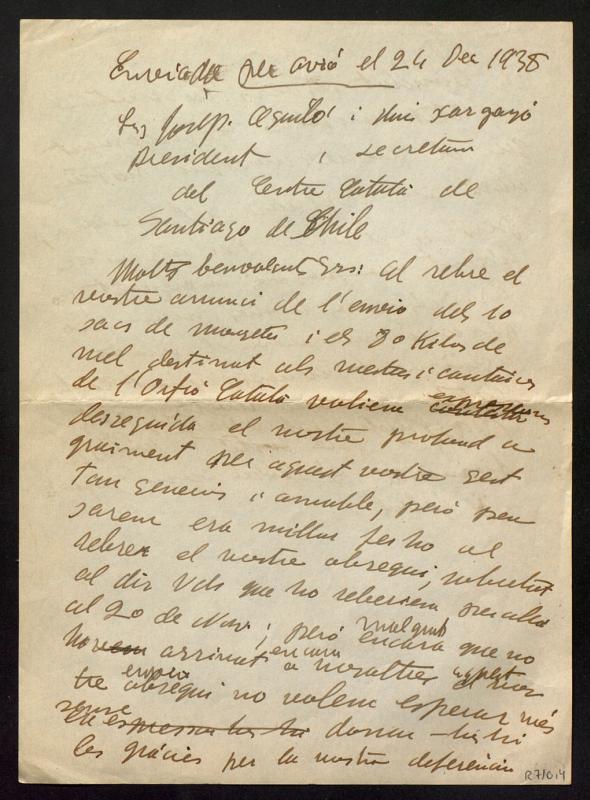 Enviada per avió el 24 Dec 1938
Srs Josep Aguiló i
President i secretari
del Centre Català de
Santiago de Chile
Molts benvolents Srs: Al rebre el
vostre anunci de l'envio dels 10
sacs de mongetes i els 30 Kilos de
mel destinat als mestres i cantaires
de l'Orfeó Català voliem expressarvos
desseguida el nostre profund a
graiment per aquest vostre gest
tan generós i amable, però pen
sarem era millor ferho al
rebre el vostre obsequi,
al dir Vds que ho rebriem per allà
al 20 de Nov.; però malgrat
encara que no
ha arrivat encara a nosaltres el vos
tre obsequi no volem esperar més
sense donar-los-hi
les gràcies per la vostra deferència
R7/014